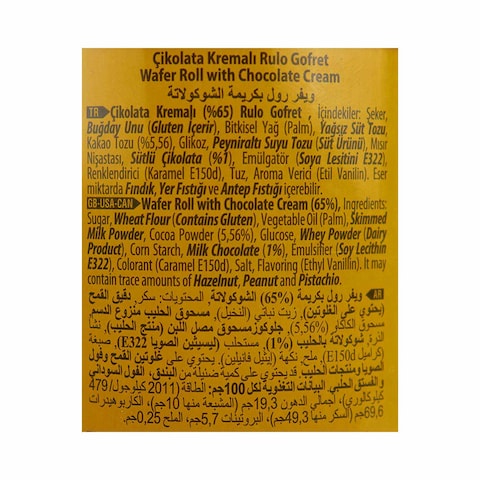 Çikolata Kremalı Rulo Gofret
Wafer Roll with Chocolate Cream
ويفر رول بكريمة الشوكولاتة
TR Çikolata Kremalı (%65) Rulo Gofret , İçindekiler: Şeker,
Buğday Unu (Gluten İçerir), Bitkisel Yağ (Palm), Yağsız Süt Tozu,
Kakao Tozu (%5,56), Glikoz, Peyniraltı Suyu Tozu (Süt Ürünü), Mısır
Nişastası, Sütlü Çikolata (%1), Emülgatör (Soya Lesitini E322),
Renklendirici (Karamel E150d), Tuz, Aroma Verici (Etil Vanilin). Eser
miktarda Fındık, Yer Fıstığı ve Antep Fıstığı içerebilir.
GB-USA-CAN Wafer Roll with Chocolate Cream (65%), Ingredients:
Sugar, Wheat Flour (Contains Gluten), Vegetable Oil (Palm), Skimmed
Milk Powder, Cocoa Powder (5,56%), Glucose, Whey Powder (Dairy
Product), Corn Starch, Milk Chocolate (1%), Emulsifier (Soy Lecithin
E322), Colorant (Caramel E150d), Salt, Flavoring (Ethyl Vanillin). It may
contain trace amounts of Hazelnut, Peanut and Pistachio.
AR ويفر رول بكريمة (65%) الشوكولاتة, المحتويات: سكر, دقيق القمح
(يحتوي على الغلوتين), زيت نباتي (النخيل), مسحوق الحليب منزوع الدسم
مسحوق الكاكار (5,56%), جلوكوز مسحوق مصل اللبن (منتج الحليب), نشا
الذرة, شوكولاتة بالحليب (1%), مستحلب (ليسيثين الصويا E322), صبغة
(كراميل E150d), ملح نكهة (إيثيل فانيلين). يحتوي على غلوتين القمح وفول
الصويا ومنتجات الحليب يحتوي على كمية ضئيلة من البندق, الفول السوداني
و الفستق الحلبي. البيانات التغذوية لكل 100جم: الطاقة (2011 كيلوجول/ 479
كيلوكالوري), أجمالي الدهون 19,3جم (المشبعة منها 10جم), الكاربوهيدرات
69,6جم (السكر منها 49,3جم), البروتينات 5,7جم, الملح 0,25جم.